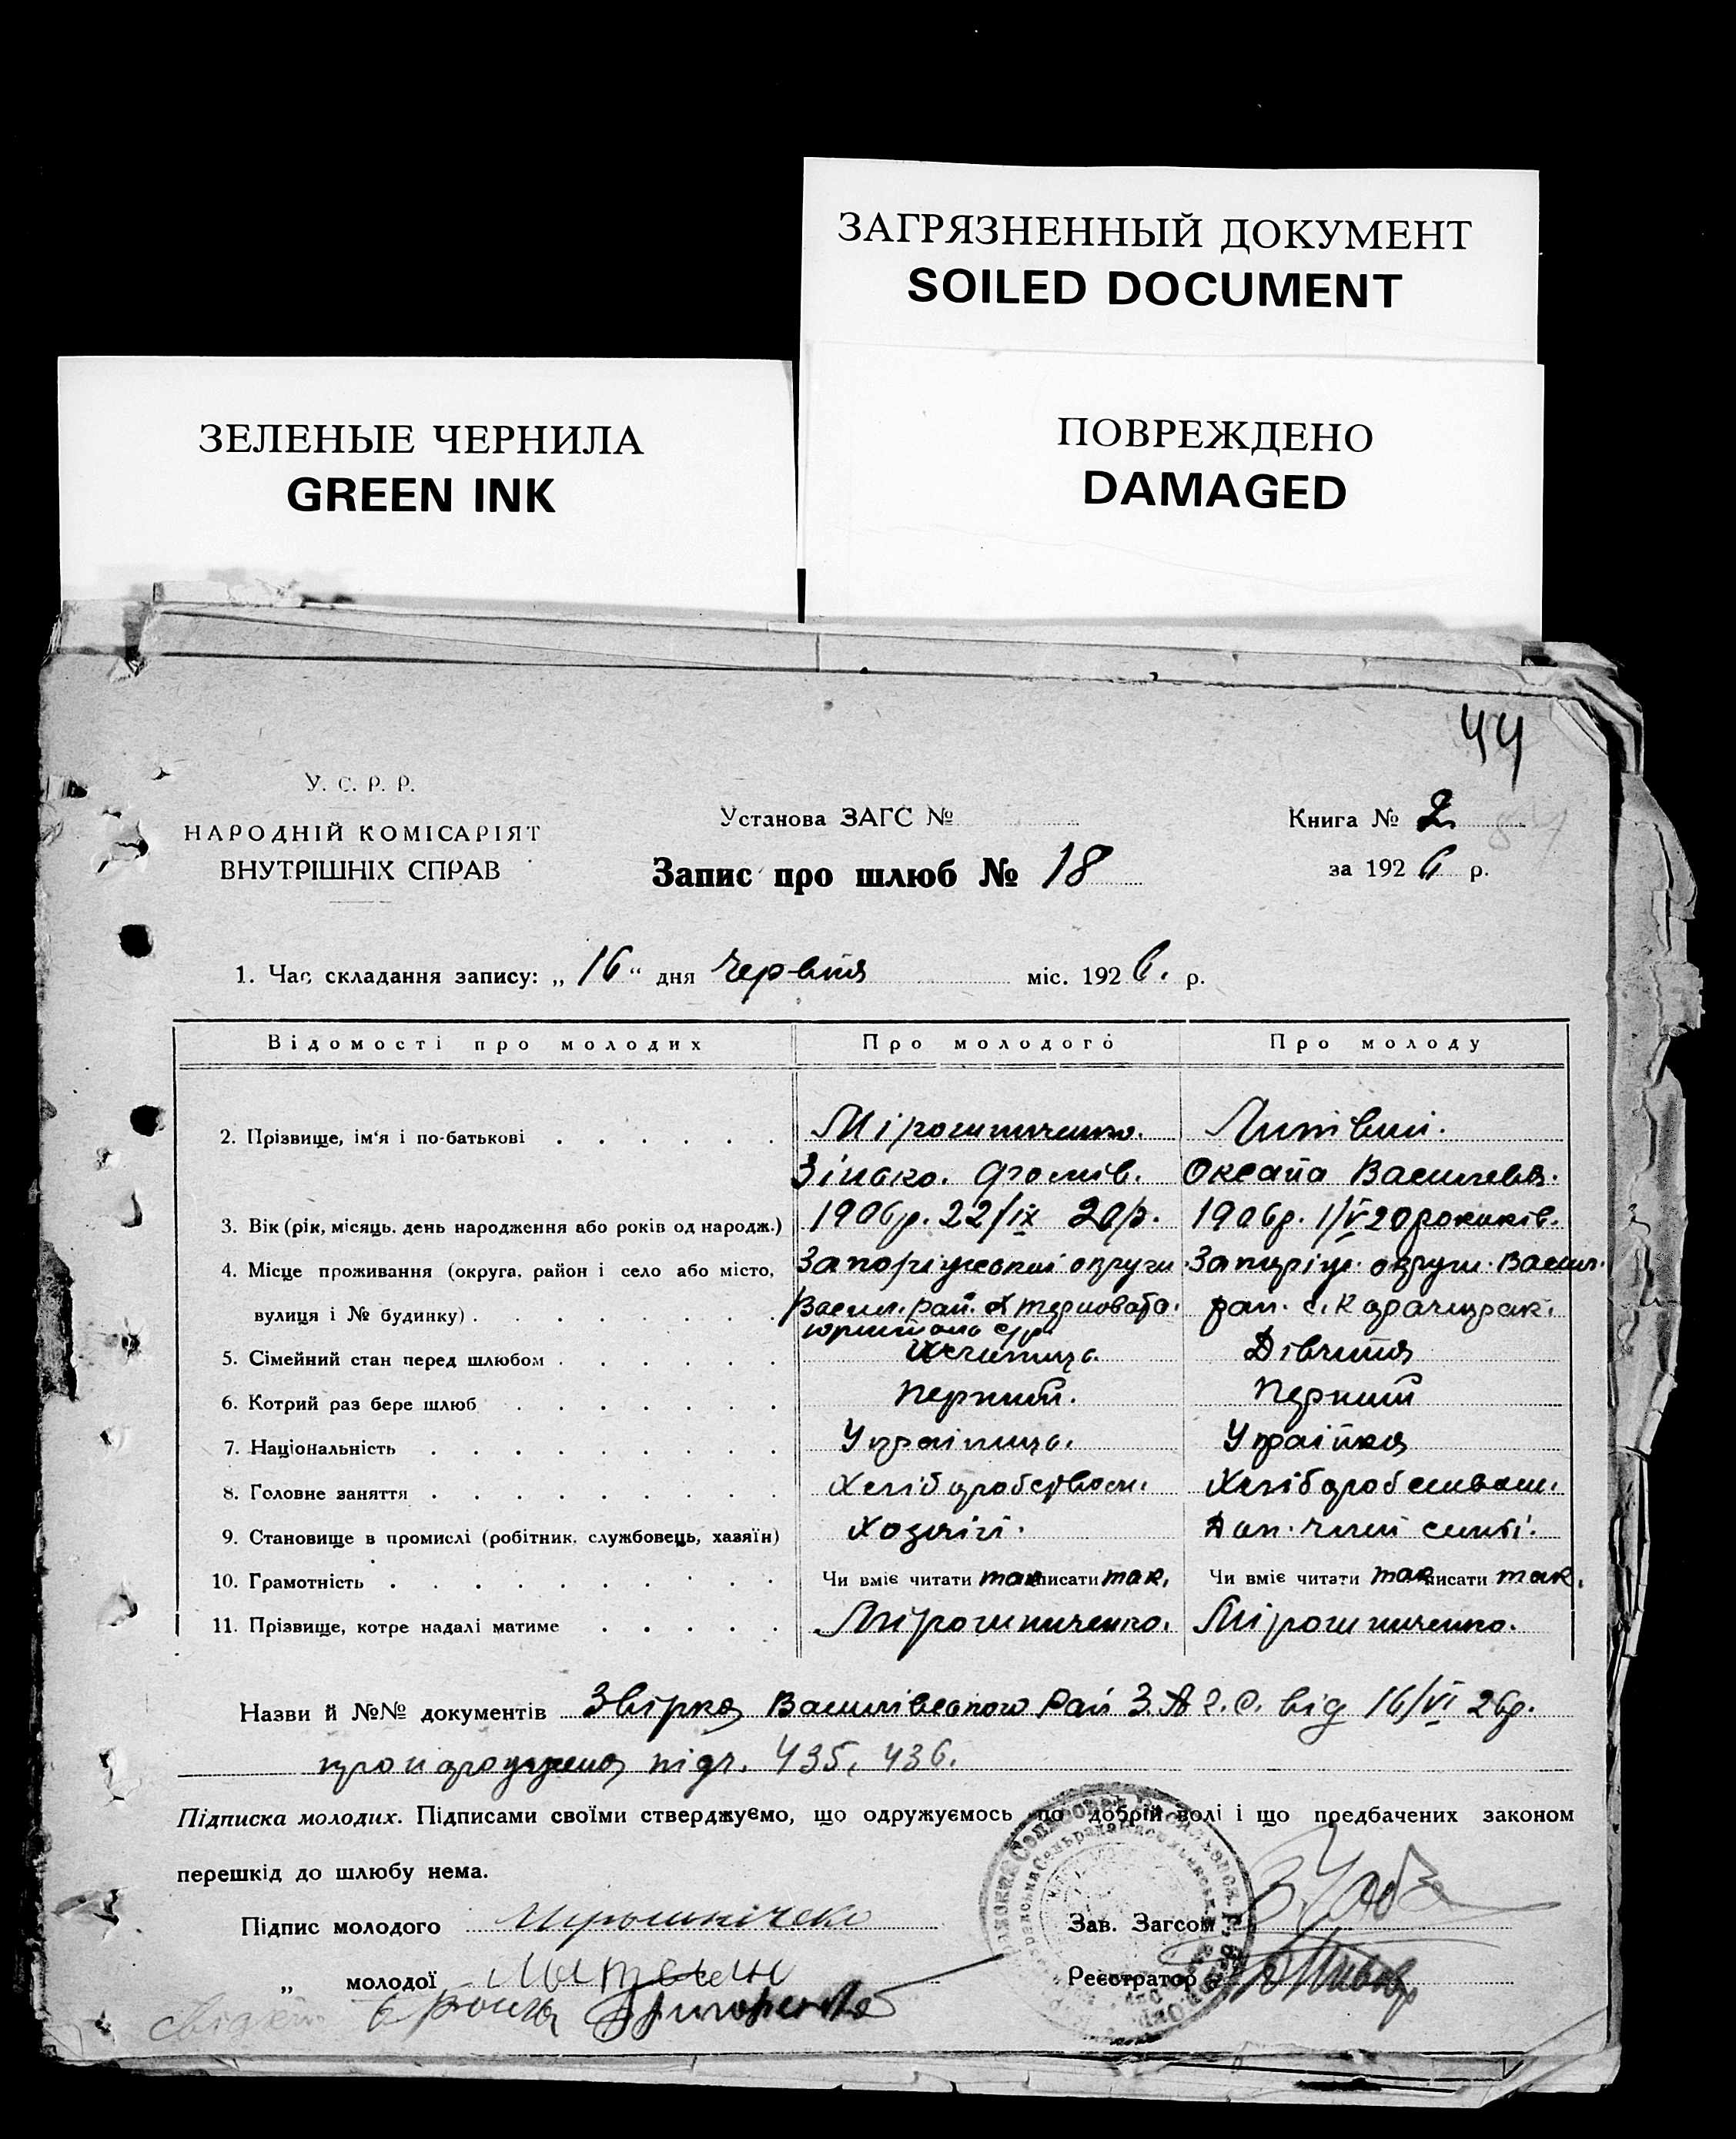 ЗАГРЯЗНЕННЫЙ ДОКУМЕНТ
SOILED DOCUMENT
ЗЕЛЕНЫЕ ЧЕРНИЛА
GREEN INK
ПОВРЕЖДЕНО
DAMAGED
44
У. С. Р. Р.
НАРОДНІЙ КОМІСАРІЯТ
ВНУТРІШНІХ СПРАВ
Установа ЗАГС №
Запис про шлюб № 18
Книга № 2
за 1926 р.
1. Час складання запису: „16“ дня червня міс. 1926. р.
Відомості про молодих Про молодого Про молоду
2. Прізвище, ім'я і по-батькові Мірошниченко. Литвин.
Зінько. Фомів. Оксана Василевя.
3. Вік (рік, місяць, день народження або років од народж.) 1906р. 22/ІХ 20р. 1906р. 1/V 20
4. Місце проживання (округа, район і село або місто, Запоріжської округи Запоріж. округи. Васил.
вулиця і № будинку) Васил. рай. х терновата. рай. с. Карачикрак.
5. Сімейний стан перед шлюбом Дівчина
6. Котрий раз бере шлюб Перший. Перший
7. Національність Українець. Українка
8. Головне заняття Хліборобством. Хліборобством.
9. Становище в промислі (робітник, службовець, хазяїн) Хозяїн. Доп. член семї.
10. Грамотність Чи вміє читати так писати так. Чи вміє читати так писати так.
11. Прізвище, котре надалі матиме Мірошниченко. Мірошниченко.
Назви й №№ документів Звірка Василівського Рай З.А.Г.С. від 16/VI 26р.
підч. 435, 436.
Підписка молодих. Підписами своїми стверджуємо, що одружуємось по добрій волі і що предбачених законом
перешкід до шлюбу нема.
Підпис молодого Зав. Загсом
„ молодої Литвин Реєстратор